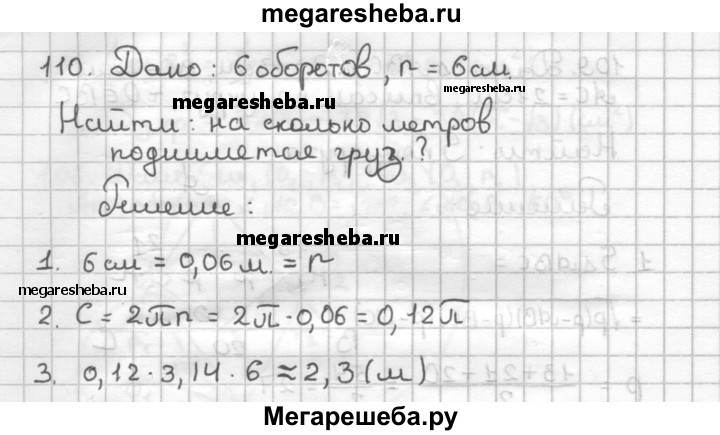 megaresheba.ru
110. Дано: 6 оборотов, r = 6 см.
megaresheba.ru
Найти: на сколько метров
поднимется груз.?
Решение:
megaresheba.ru
1. 6 см = 0,06 м. = r
megaresheba.ru
2. C = 2πr = 2π·0,06 = 0,12π
3. 0,12·3,14·6 ≈ 2,3 (м)
Мегарешеба.ру